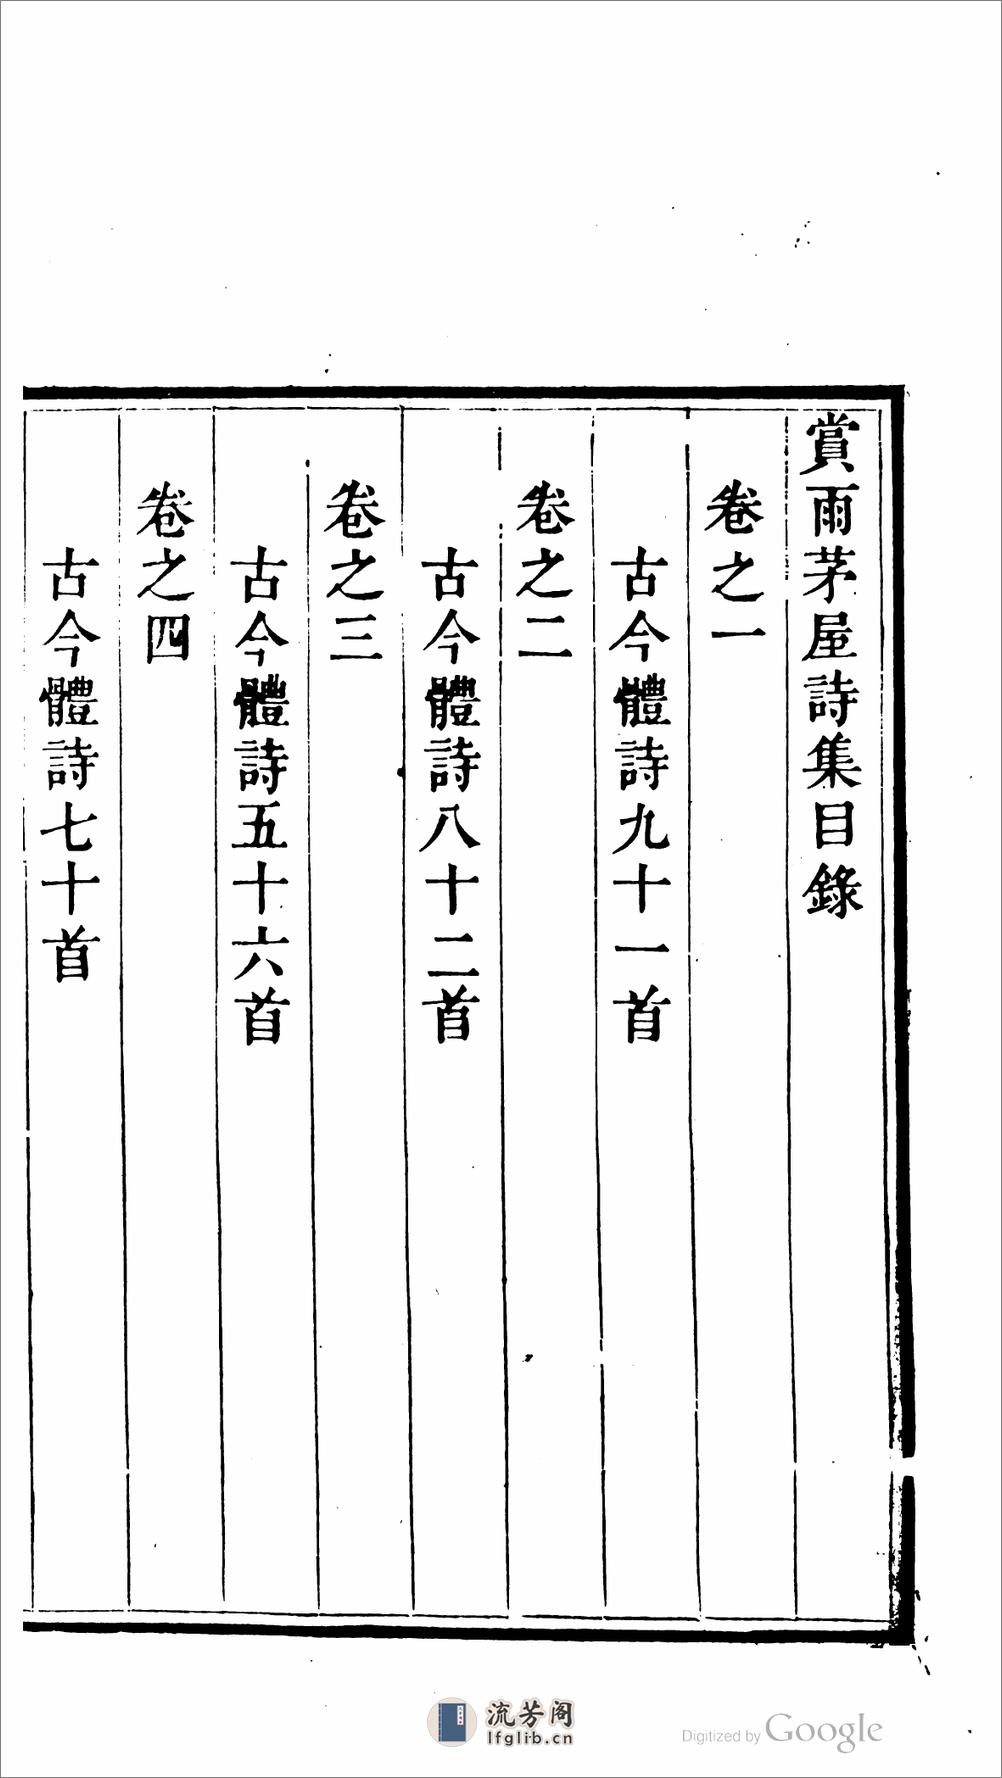 賞雨茅屋詩集目錄
卷之一
古今體詩九十一首
卷之二
古今體詩八十二首
卷之三
古今體詩五十六首
卷之四
古今體詩七十首
流芳阁
lfglib.cn
Digitized by Google